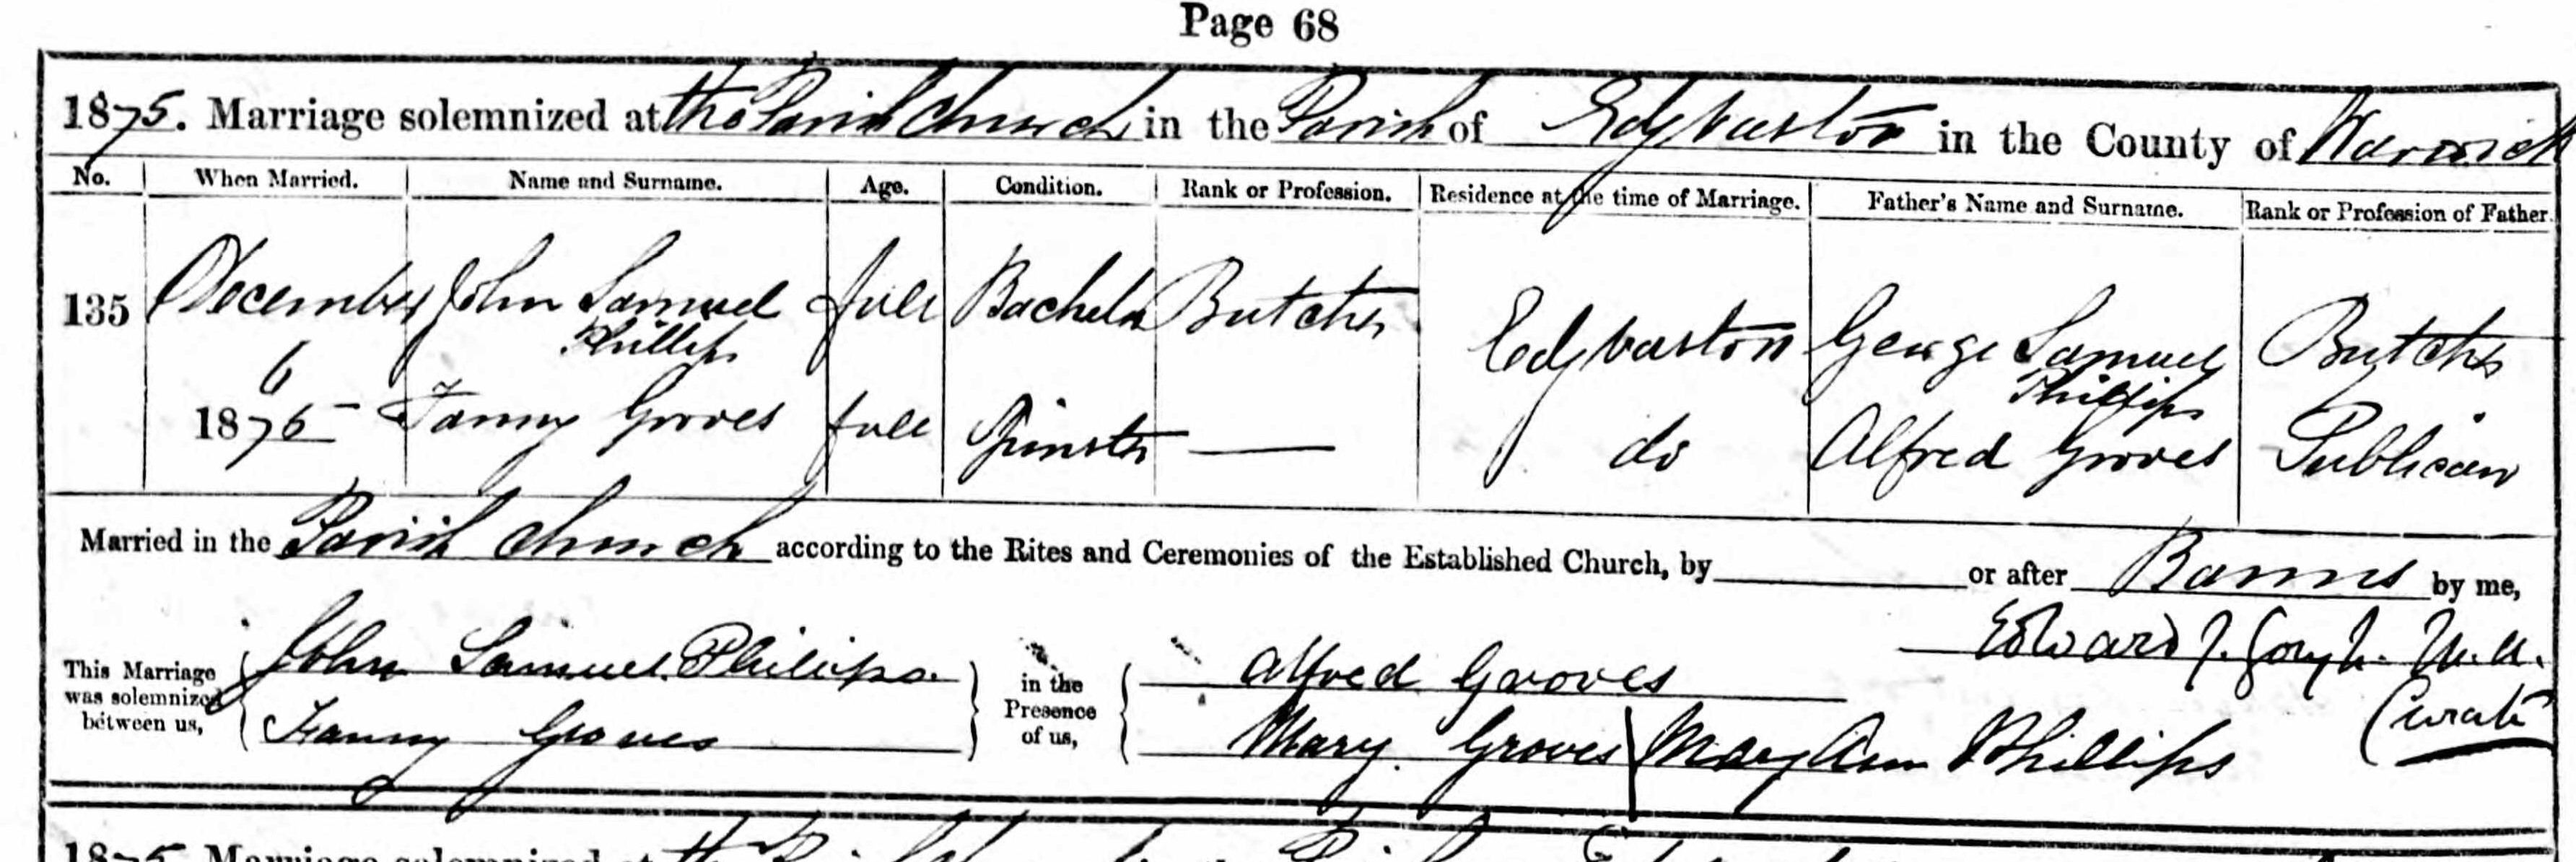 Page 68
1875. Marriage solemnized at the Parish Church in the Parish of Edgbaston in the County of Warwick
No. When Married. Name and Surname. Age. Condition. Rank or Profession. Residence at the time of Marriage. Father's Name and Surname. Rank or Profession of Father.
135 December John Samuel full Bachelor Butcher Edgbaston George Samuel Butcher
6 Phillips Phillips
1875 Fanny Groves full Spinster — do Alfred Groves Publican
Married in the Parish Church according to the Rites and Ceremonies of the Established Church, by or after Banns by me,
Edward J. M.A.
Curate
This Marriage was solemnized between us, John Samuel Phillips in the Presence of us, Alfred Groves
Fanny Groves Mary Groves | Mary Ann Phillips
1875. Marriage solemnized at